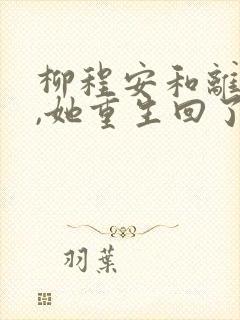 柳程安和離
,她重生回了
羽葉